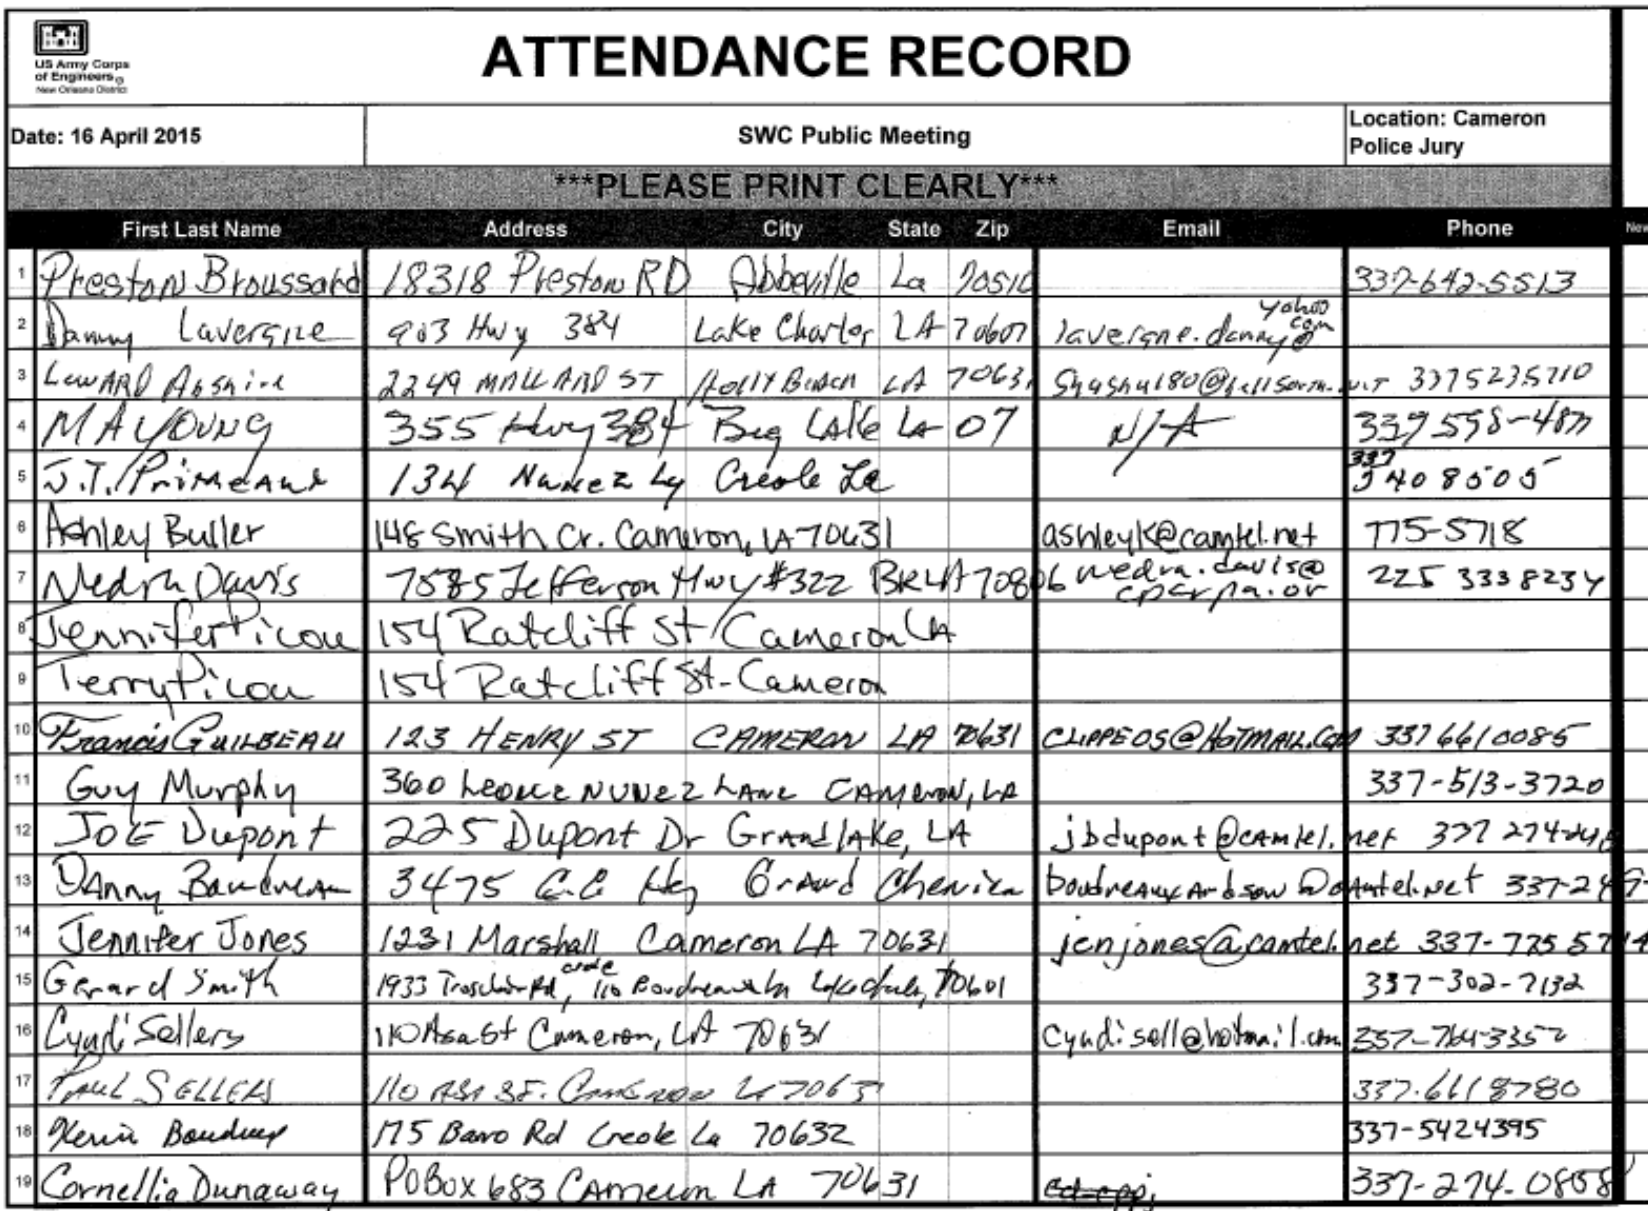 US Army Corps
of Engineers
New Orleans District
ATTENDANCE RECORD
Date: 16 April 2015
SWC Public Meeting
Location: Cameron
Police Jury
***PLEASE PRINT CLEARLY***
First Last Name Address City State Zip Email Phone New
1 Preston Broussard 18318 Preston RD Abbeville La 70510 337-642-5513
2 Danny Lavergne 903 Hwy 384 Lake Charles LA 70607 lavergne.danny@ yahoo com
3 2249 MALLARD ST Holly Beach LA 7063 3375235710
4 MA YOUNG 355 Hwy 384 Big Lake La 07 N/A
5 J.T. Primeaux 134 Nunez Creole La 337 5408505
6 Ashley Buller 148 Smith Cr. Cameron, LA 70631 ashleyk@camtel.net 775-5718
7 Nedra Davis 7585 Jefferson Hwy #322 BR LA 70806 nedra.davis@ 225 3338234
8 Jennifer Picou 154 Ratcliff St Cameron LA
9 Terry Picou 154 Ratcliff St-Cameron
10 Francis GUILBEAU 123 HENRY ST CAMERON LA 70631 CLIPPEOS@HOTMAIL.COM 3376610085
11 Guy Murphy 360 Leonce NUNEZ LANE CAMERON, LA 337-513-3720
12 JOE Dupont 225 Dupont Dr Grandlake, LA jbdupont@camtel.net 337 274
13 Danny Boudreau 3475 Hwy Grand Chenier 337-249-
14 Jennifer Jones 1231 Marshall Cameron LA 70631 jenjones@camtel.net 337-775 5714
15 Gerard Smith 1933 Rd, 110 70601 337-302-7132
16 Cyndi Sellers 110 Asa St Cameron, LA 70631 cyndisell@hotmail.com 337-764-3352
17 PAUL SELLERS 110 ASA ST. CAMERON LA 7063 337.6618780
18 Kevin 175 Rd Creole La 70632 337-5424395
19 Cornellia Dunaway PO Box 683 Cameron LA 70631 337-274-0858